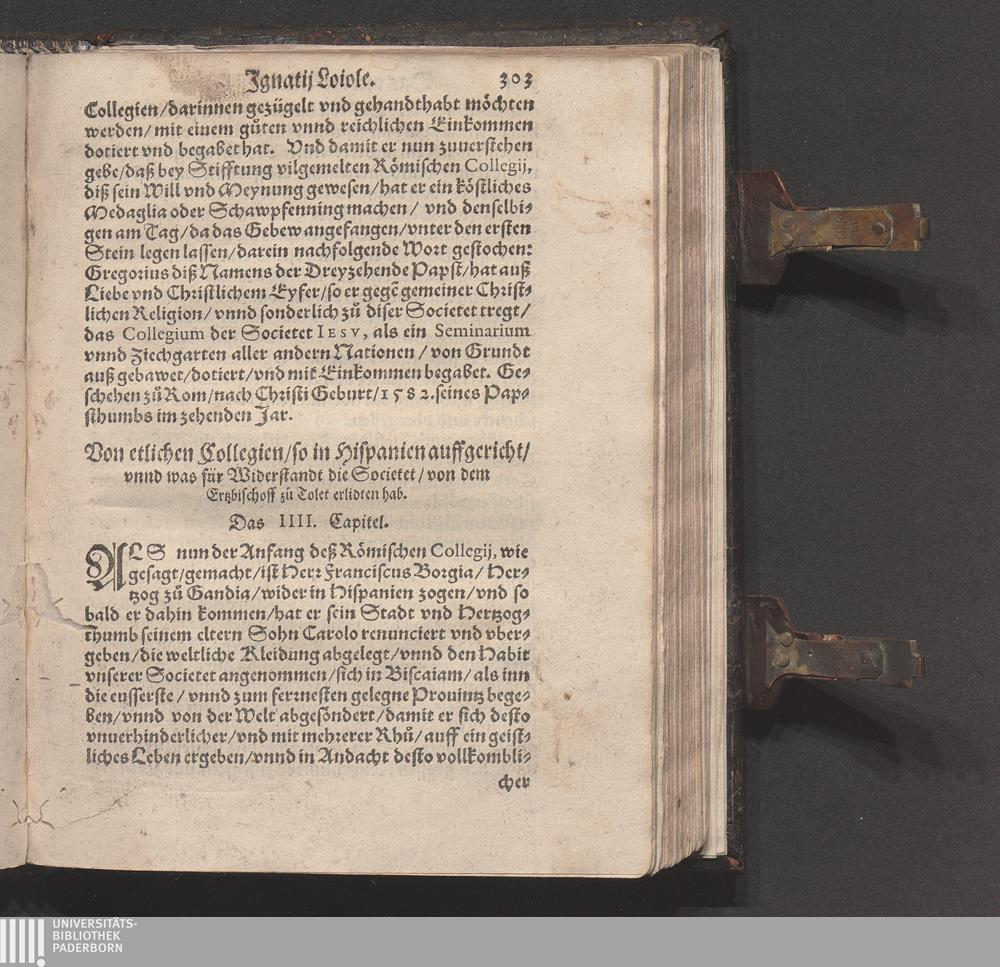 Ignatij Loiole. 303
Collegien/darinnen gezügelt vnd gehandthabt möchten
werden/mit einem gůten vnnd reichlichen Einkommen
dotiert vnd begabet hat. Vnd damit er nun zuuerstehen
gebe/daß bey Stifftung vilgemelten Römischen Collegij,
diß sein Will vnd Meynung gewesen/hat er ein köstliches
Medaglia oder Schawpfenning machen/ vnd denselbi-
gen am Tag/da das Gebew angefangen/vnter den ersten
Stein legen lassen/darein nachfolgende Wort gestochen:
Gregorius diß Namens der Dreyzehende Papst/hat auß
Liebe vnd Christlichem Eyfer/so er gegẽ gemeiner Christ-
lichen Religion/ vnnd sonderlich zů diser Societet tregt/
das Collegium der Societet IESV, als ein Seminarium
vnnd Ziechgarten aller andern Nationen / von Grundt
auß gebawet/dotiert/vnd mit Einkommen begabet. Ge-
schehen zů Rom/nach Christi Geburt/1582. seines Pap-
sthumbs im zehenden Jar.
Von etlichen Collegien/so in Hispanien auffgericht/
vnnd was für Widerstandt die Societet/von dem
Ertzbischoff zů Tolet erlidten hab.
Das IIII. Capitel.
ALS nun der Anfang deß Römischen Collegij, wie
gesagt/gemacht/ist Herr Franciscus Borgia/ Her-
tzog zů Gandia/wider in Hispanien zogen/vnd so
bald er dahin kommen/hat er sein Stadt vnd Hertzog-
thumb seinem eltern Sohn Carolo renunciert vnd vber-
geben/die weltliche Kleidung abgelegt/vnnd den Habit
vnserer Societet angenommen/sich in Biscaiam/als inn
die eusserste / vnnd zum ferrnesten gelegne Prouintz bege-
ben/vnnd von der Welt abgesöndert/damit er sich desto
vnuerhinderlicher/vnd mit mehrerer Rhů/ auff ein geist-
liches Leben ergeben/vnnd in Andacht desto vollkombli-
cher
UNIVERSITÄTS-
BIBLIOTHEK
PADERBORN